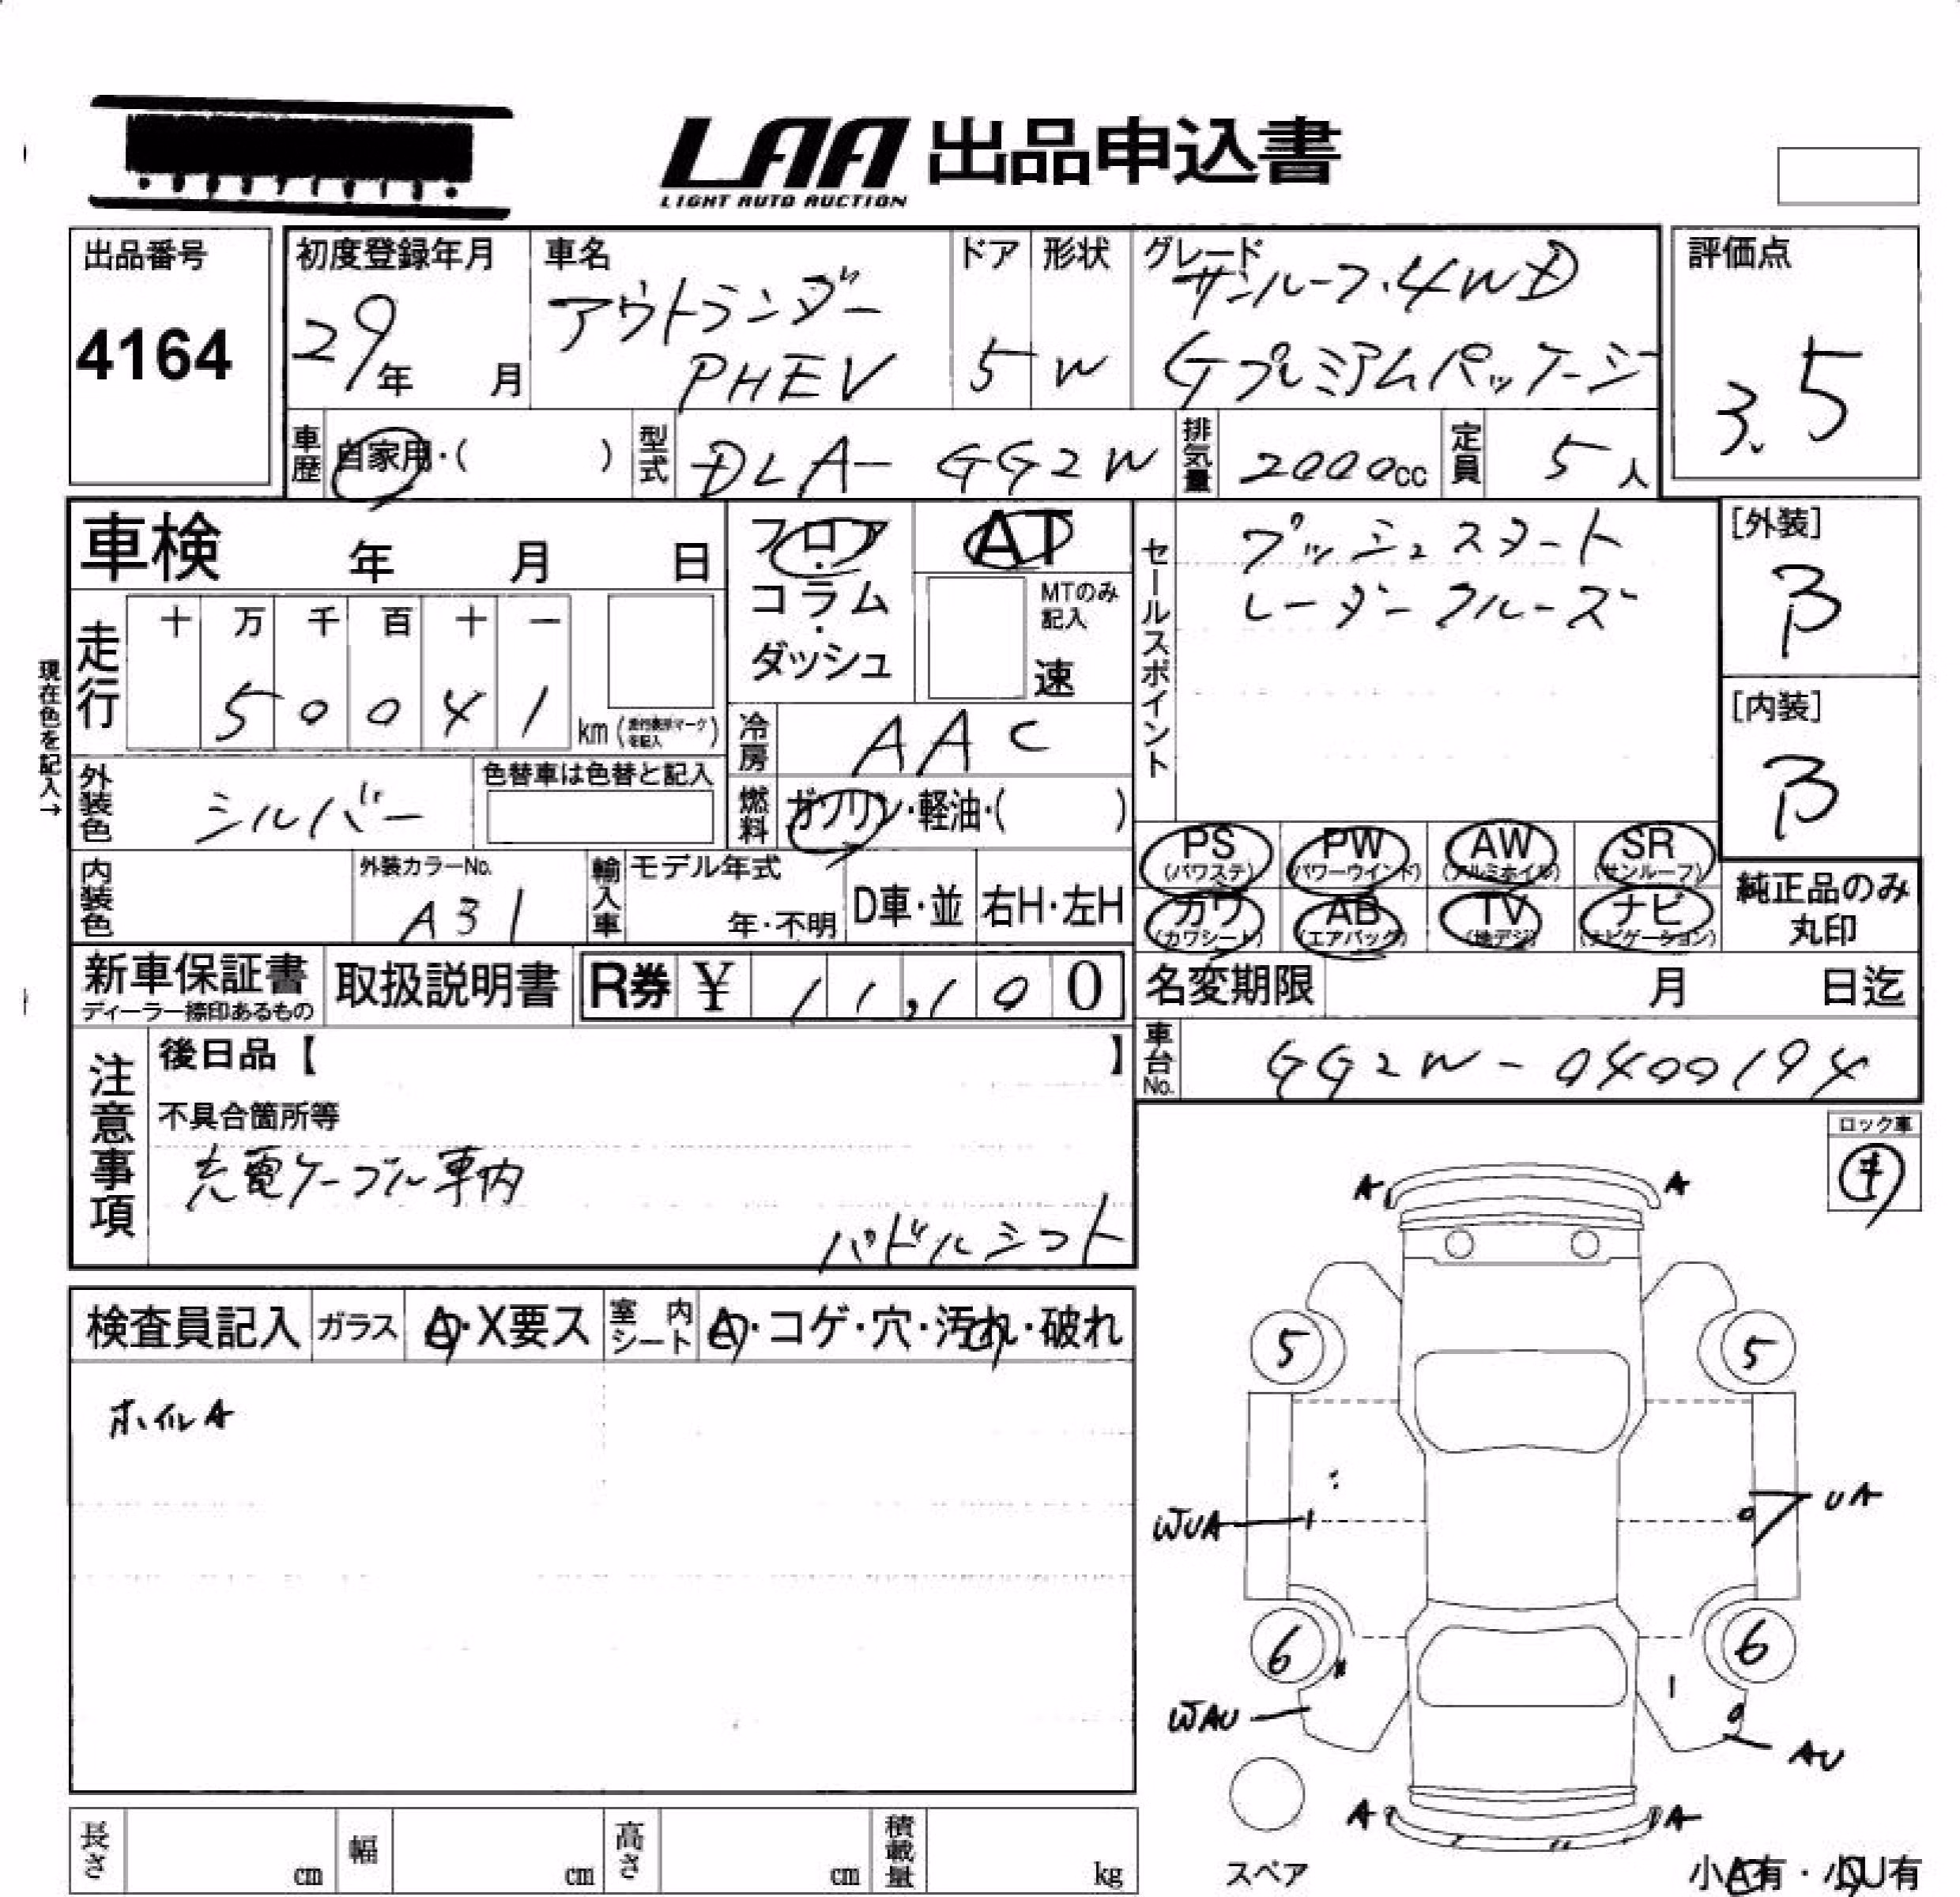 LAA 出品申込書
LIGHT AUTO AUCTION
出品番号
4164
初度登録年月
29年 月
車名
アウトランダー
PHEV
ドア
5
形状
W
グレード
サンルーフ・4WD
Gプレミアムパッケージ
評価点
3.5
車歴 自家用・( )
型式 DLA-GG2W
排気量 2000cc
定員 5人
車検 年 月 日
フロア・コラム・ダッシュ
AT
MTのみ記入
速
セールスポイント
プッシュスタート
レーダークルーズ
[外装]
B
[内装]
B
現在色を記入→
走行
十 万 千 百 十 一
5 0 0 4 1 km
冷房 AAC
外装色 シルバー
色替車は色替と記入
燃料 ガソリン・軽油・( )
PS (パワステ)
PW (パワーウインド)
AW (アルミホイル)
SR (サンルーフ)
カワ (カワシート)
AB (エアバック)
TV (地デジ)
ナビ (ナビゲーション)
純正品のみ
丸印
内装色
外装カラーNo.
A31
輸入車
モデル年式
年・不明
D車・並
右H・左H
新車保証書
ディーラー捺印あるもの
取扱説明書
R券 ¥ 11,100
名変期限 月 日迄
車台No. GG2W-0400194
注意事項
後日品【 】
不具合箇所等
充電ケーブル車内
パドルシフト
ロック車
キ
検査員記入
ガラス A・X要ス
室内シート A・コゲ・穴・汚れ・破れ
ホイルA
A A
5 5
WUA UA
6 6
WAU AU
A A
スペア
小A有・小U有
長さ cm
幅 cm
高さ cm
積載量 kg